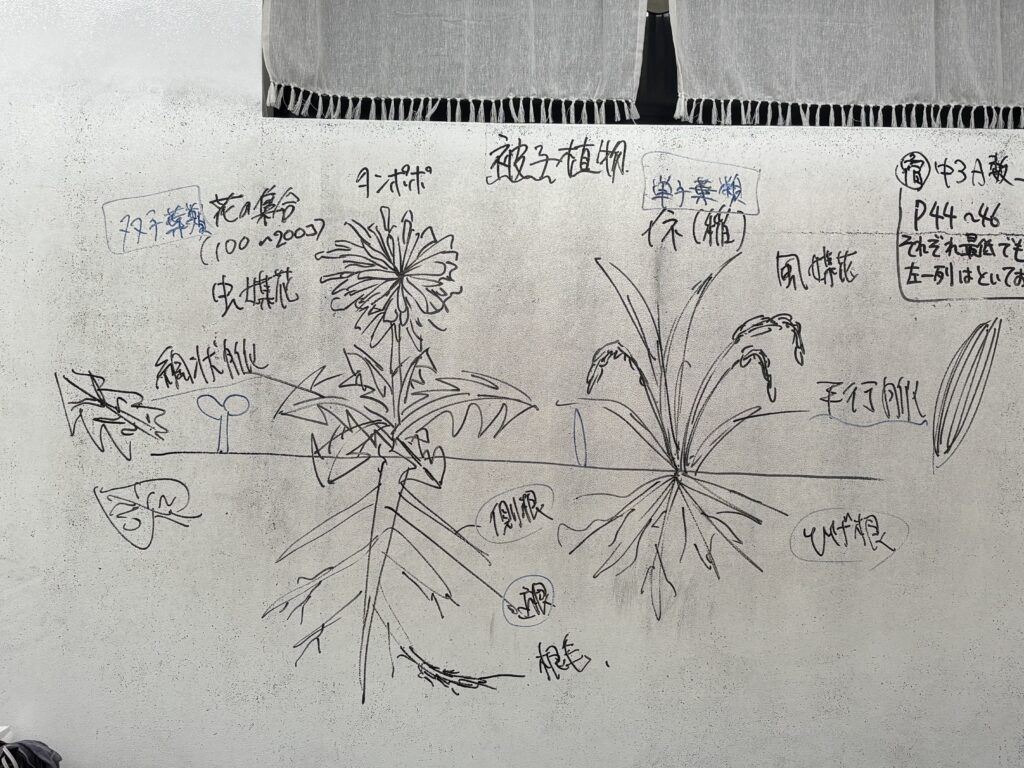 被子植物
タンポポ
双子葉類
花の集合
(100~200コ)
虫媒花
網状脈
側根
主根
根毛
単子葉類
イネ(稲)
風媒花
平行脈
ひげ根
宿 中3A数
P44~46
それぞれ最低でも
左一列はといてお